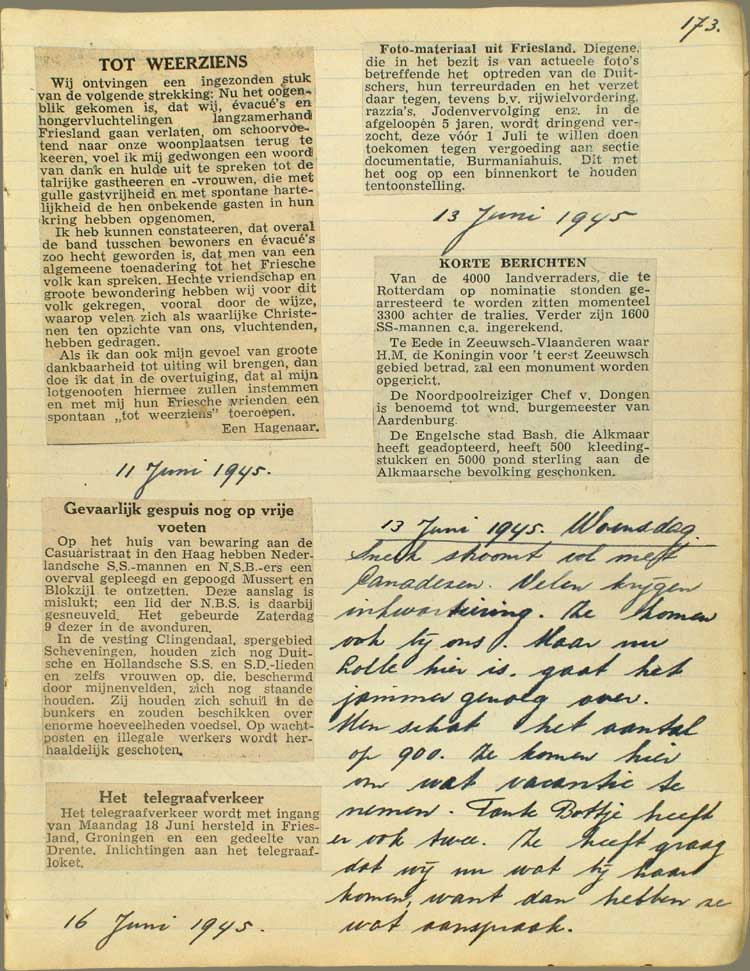 173.
TOT WEERZIENS
Wij ontvingen een ingezonden stuk
van de volgende strekking: Nu het oogen-
blik gekomen is, dat wij, évacué's en
hongervluchtelingen langzamerhand
Friesland gaan verlaten, om schoorvoe-
tend naar onze woonplaatsen terug te
keeren, voel ik mij gedwongen een woord
van dank en hulde uit te spreken tot de
talrijke gastheeren en -vrouwen, die met
gulle gastvrijheid en met spontane harte-
lijkheid de hen onbekende gasten in hun
kring hebben opgenomen.
Ik heb kunnen constateeren, dat overal
de band tusschen bewoners en évacué's
zoo hecht geworden is, dat men van een
algemeene toenadering tot het Friesche
volk kan spreken. Hechte vriendschap en
groote bewondering hebben wij voor dit
volk gekregen, vooral door de wijze,
waarop velen zich als waarlijke Christe-
nen ten opzichte van ons, vluchtenden,
hebben gedragen.
Als ik dan ook mijn gevoel van groote
dankbaarheid tot uiting wil brengen, dan
doe ik dat in de overtuiging, dat al mijn
lotgenooten hiermee zullen instemmen
en met mij hun Friesche vrienden een
spontaan „tot weerziens" toeroepen.
Een Hagenaar.
11 Juni 1945.
Gevaarlijk gespuis nog op vrije
voeten
Op het huis van bewaring aan de
Casuaristraat in den Haag hebben Neder-
landsche S.S.-mannen en N.S.B.-ers een
overval gepleegd en gepoogd Mussert en
Blokzijl te ontzetten. Deze aanslag is
mislukt; een lid der N.B.S. is daarbij
gesneuveld. Het gebeurde Zaterdag
9 dezer in de avonduren.
In de vesting Clingendaal, spergebied
Scheveningen, houden zich nog Duit-
sche en Hollandsche S.S. en S.D.-lieden
en zelfs vrouwen op, die, beschermd
door mijnenvelden, zich nog staande
houden. Zij houden zich schuil in de
bunkers en zouden beschikken over
enorme hoeveelheden voedsel. Op wacht-
posten en illegale werkers wordt her-
haaldelijk geschoten.
Het telegraafverkeer
Het telegraafverkeer wordt met ingang
van Maandag 18 Juni hersteld in Fries-
land, Groningen en een gedeelte van
Drente. Inlichtingen aan het telegraaf-
loket.
16 Juni 1945.
Foto-materiaal uit Friesland. Diegene,
die in het bezit is van actueele foto's
betreffende het optreden van de Duit-
schers, hun terreurdaden en het verzet
daar tegen, tevens b.v. rijwielvordering,
razzia's, Jodenvervolging enz. in de
afgeloopén 5 jaren, wordt dringend ver-
zocht, deze vóór 1 Juli te willen doen
toekomen tegen vergoeding aan sectie
documentatie, Burmaniahuis. Dit met
het oog op een binnenkort te houden
tentoonstelling.
13 Juni 1945
KORTE BERICHTEN
Van de 4000 landverraders, die te
Rotterdam op nominatie stonden ge-
arresteerd te worden zitten momenteel
3300 achter de tralies. Verder zijn 1600
SS-mannen c.a. ingerekend.
Te Eede in Zeeuwsch-Vlaanderen waar
H.M. de Koningin voor 't eerst Zeeuwsch
gebied betrad, zal een monument worden
opgericht.
De Noordpoolreiziger Chef v. Dongen
is benoemd tot wnd. burgemeester van
Aardenburg.
De Engelsche stad Bash, die Alkmaar
heeft geadopteerd, heeft 500 kleeding-
stukken en 5000 pond sterling aan de
Alkmaarsche bevolking geschonken.
13 Juni 1945. Woensdag
Sneek stroomt vol met
Canadezen. Velen krijgen
inkwartiering. Ze komen
ook bij ons. Maar nu
hier is, gaat het
jammer genoeg over.
Men schat het aantal
op 900. Ze komen hier
om wat vacantie te
nemen. Tante Bottje heeft
er ook twee. Ze heeft graag
dat wij nu wat bij haar
komen, want dan hebben ze
wat aanspraak.